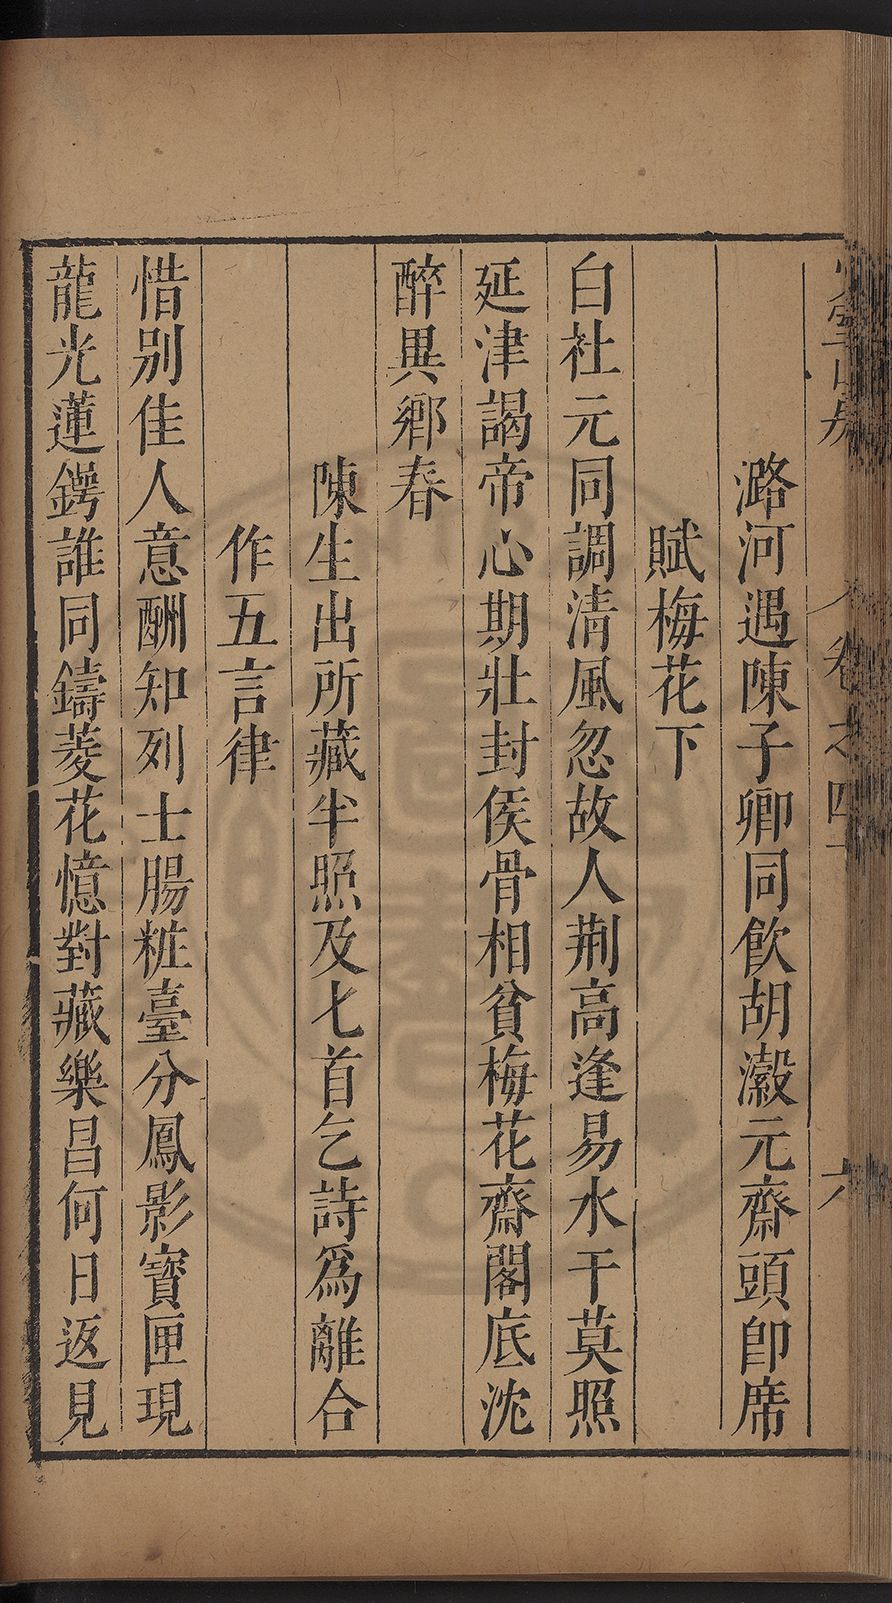 卷之四十
六
潞河遇陳子卿同飲胡瀫元齋頭卽席
賦梅花下
白社元同調清風忽故人荆高逢易水干莫照
延津謁帝心期壯封侯骨相貧梅花齋閣底沈
醉異鄉春
陳生出所藏半照及七首乞詩爲離合
作五言律
惜别佳人意酬知列士腸粧臺分鳳影寳匣現
龍光蓮鍔誰同鑄菱花憶對藏樂昌何日返見